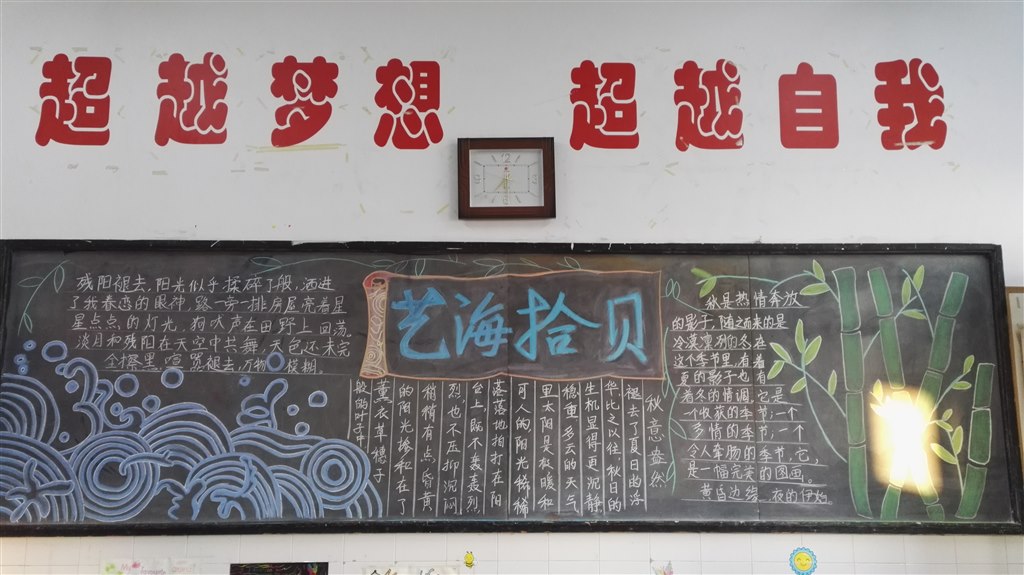 超越梦想 超越自我
12
残阳褪去,阳光似乎揉碎了般,洒进
了我眷恋的眼神,路一旁一排房屋亮着星
星点点的灯光,狗吠声在田野上回荡,
淡月和残阳在天空中共舞,天色还未完
全擦黑,喧嚣褪去,万物 模糊。
艺海拾贝
秋意盎然
褪去了夏日的浮
华比之以往秋日的
生机显得更沉静
稳重多云的天气
里太阳是极暖和
可人的阳光稀稀
落落地拍打在阳
台上,既不轰轰烈
烈,也不压抑沉闷
稍稍有点昏黄
的阳光掺和在了
薰衣草穗子
般的叶子中
秋是热情奔放
的影子,随之而来的是
冷漠凛冽的冬,在
这个季节里,有着
夏的影子也有
着冬的情调,它是
一个收获的季节,一个
多情的季节,一个
令人牵肠的季节,它,
是一幅完美的图画。
黄昏边缘,夜的伊始